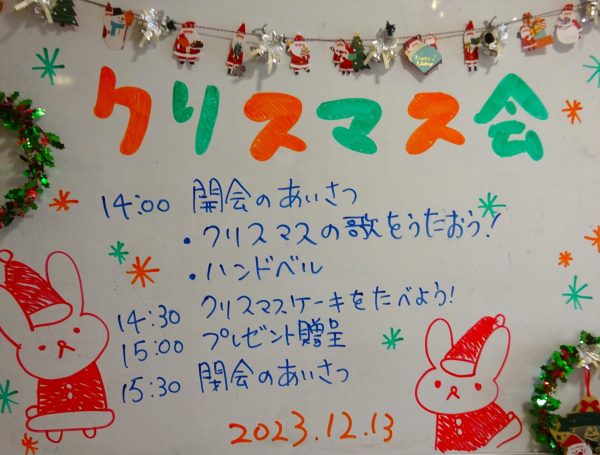 クリスマス会
14:00 開会のあいさつ
・クリスマスの歌をうたおう!
・ハンドベル
14:30 クリスマスケーキをたべよう!
15:00 プレゼント贈呈
15:30 閉会のあいさつ
2023.12.13